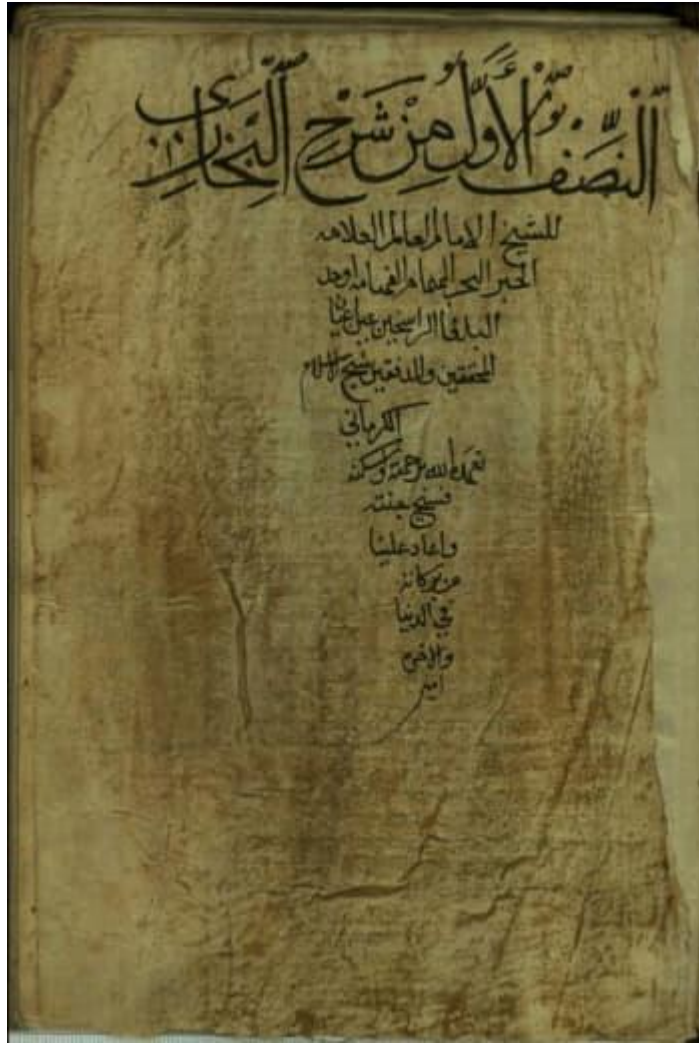 النِّصْفُ الأَوَّلُ مِنْ شَرْحِ البُخَارِي
للشيخ الامام العالم العلامه
الحبر البحر الهمام الفهامه اوحد
البلغا الراسخين عين اعيان
المحققين والمدققين شيخ الاسلام
الكرماني
تغمده الله برحمته واسكنه
فسيح جنته
واعاد علينا
من بركاته
في الدنيا
والاخره
امين